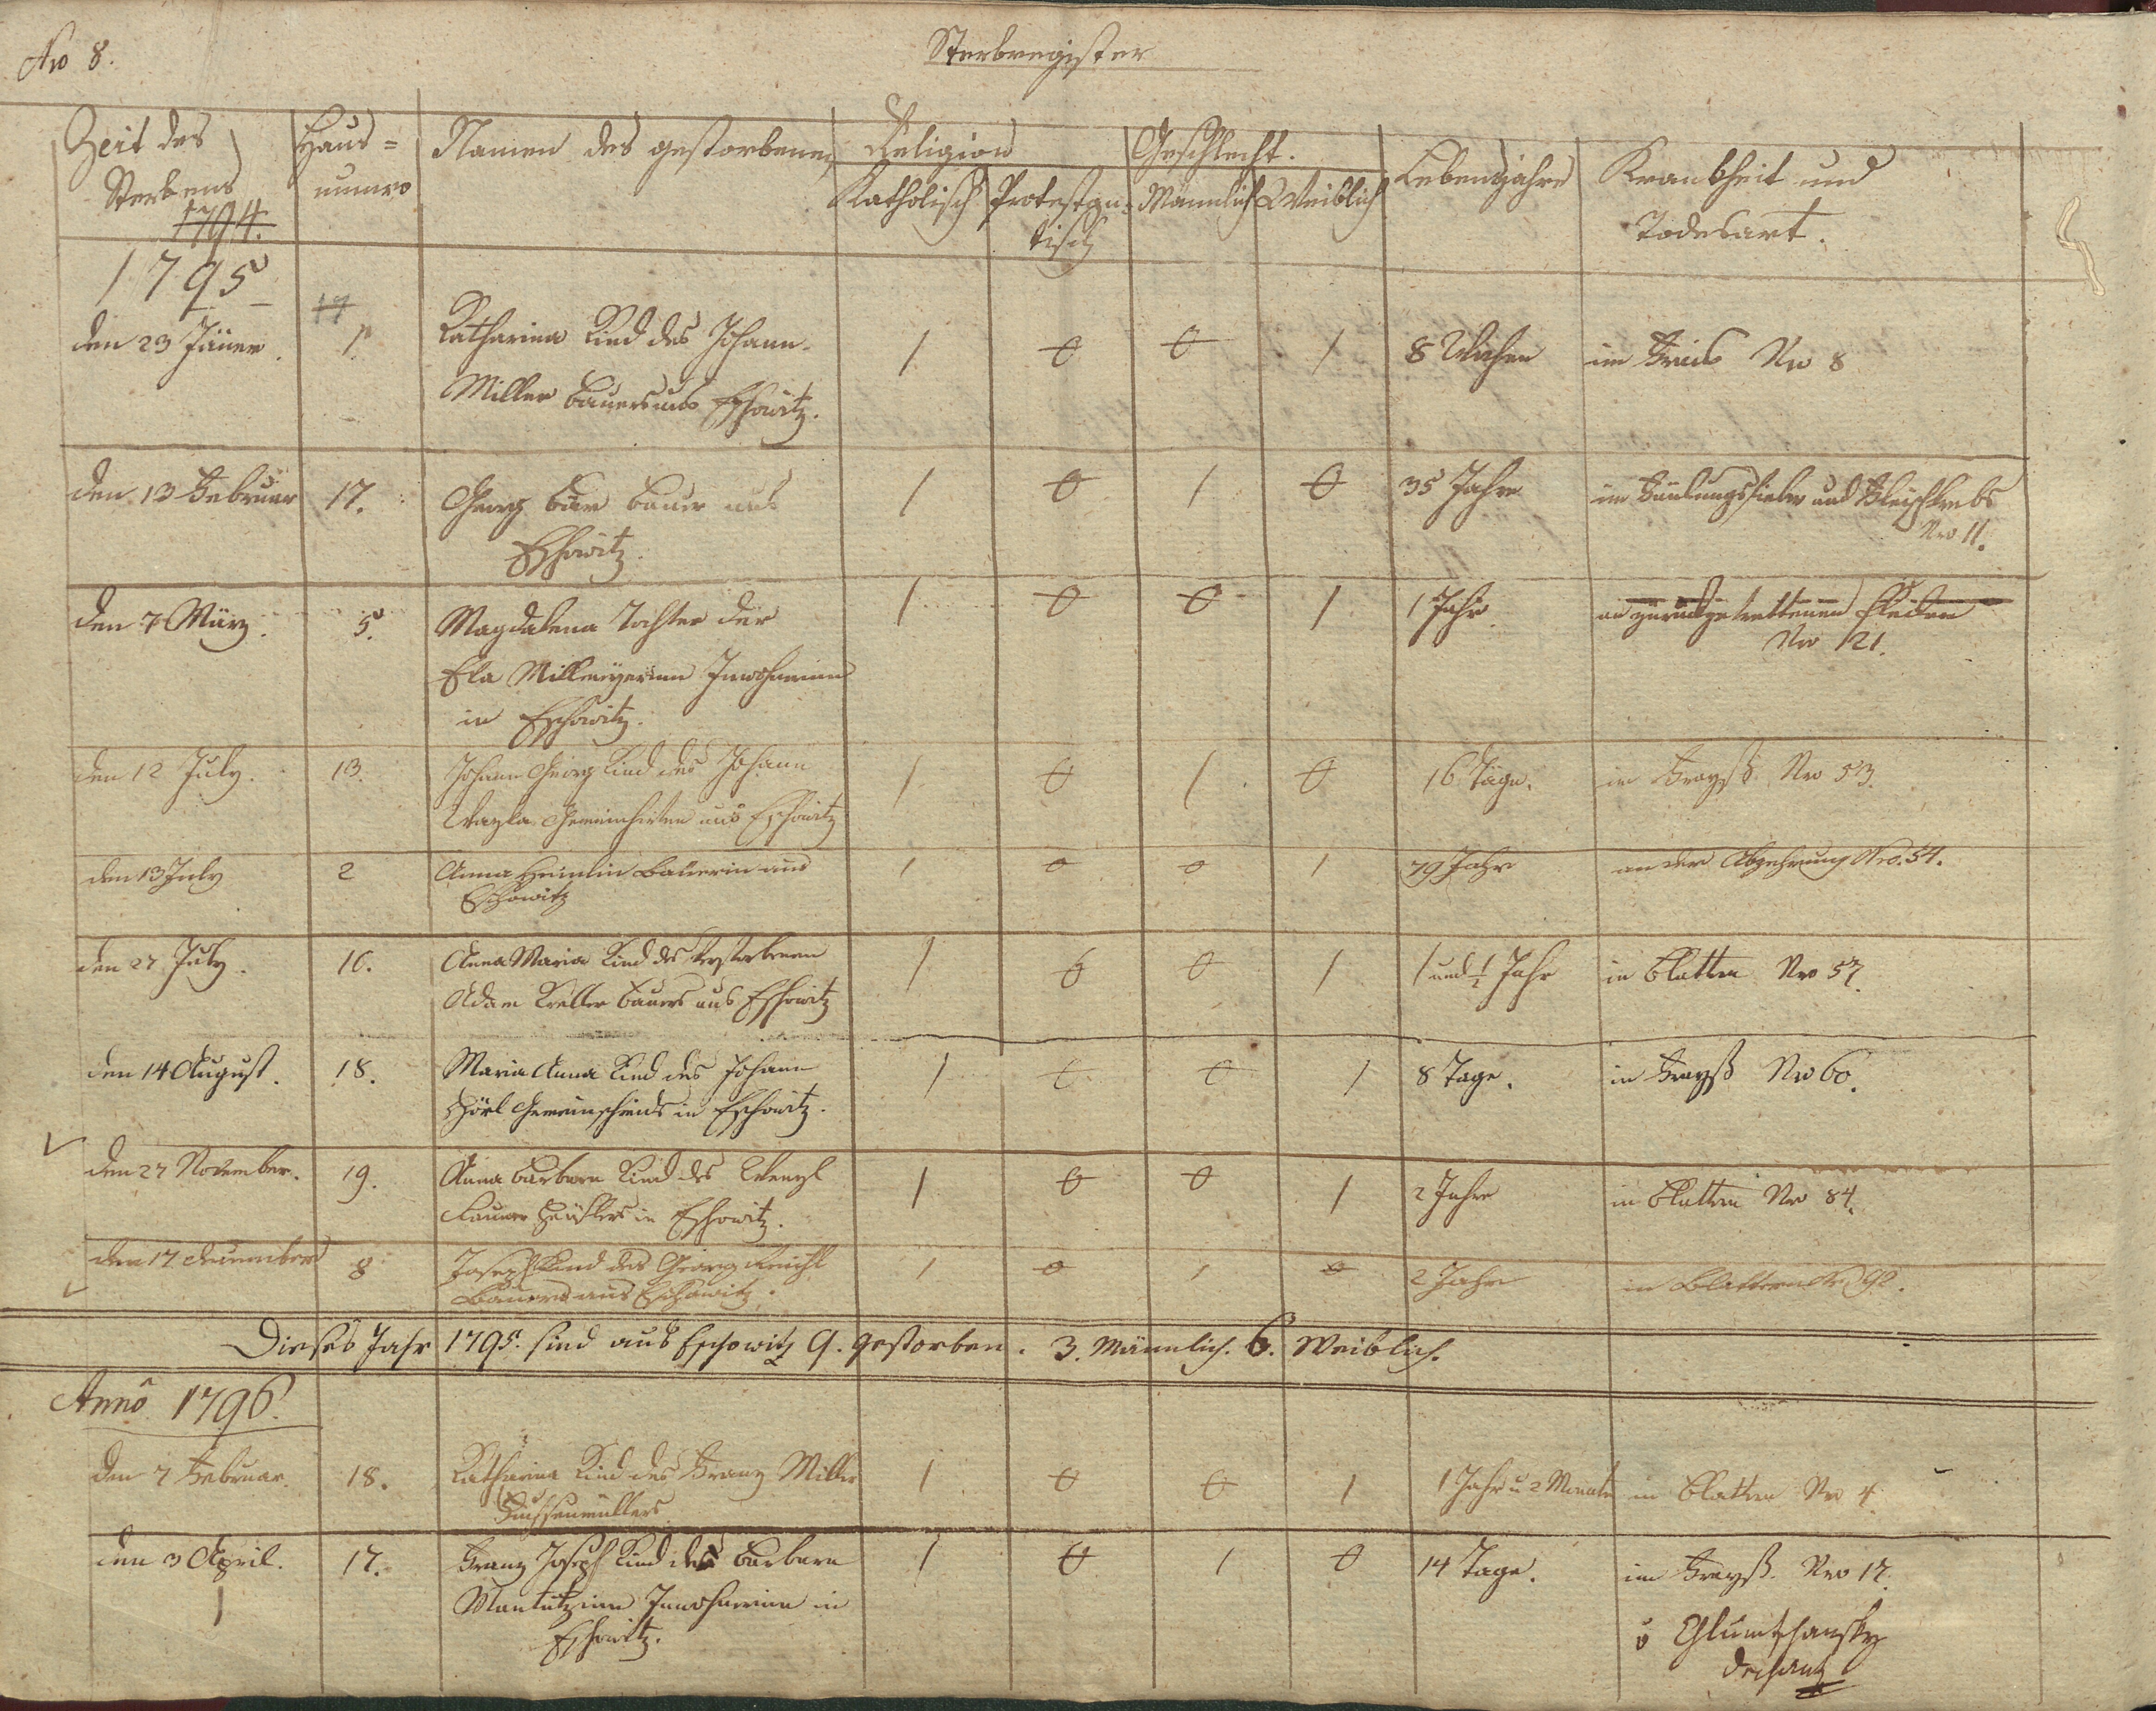 No 8.
Sterbregister
Zeit des Sterbens
1794.
Haus=numero
Namen des gestorbenen
Religion
Katholisch Protestantisch
Geschlecht.
Männlich Weiblich
Lebensjahre
Krankheit und Todesart.
1795
17
den 23 Jäner. 1. Katharina Kind des Johann 1 0 0 1 8 Wochen im Frais Nro 8
Miller Bauers aus Eschowitz.
den 13 Februar 17. Georg Bär Bauer aus 1 0 1 0 35 Jahre im Faulungsfieber und
Eschowitz. Nro 11.
den 7 März. 5. Magdalena Tochter der 1 0 0 1 1 Jahr. an zurückgetrettenen Flecken
Ela Inwohnerinn Nro 21.
in Eschowitz.
den 12 July. 13. Johann Georg Kind des Johann 1 0 1 0 16 Täge. in Frayß Nro 53.
Gemeinhirten aus Eschowitz
den 13 July 2 Anna Heimlin Bäuerin aus 1 0 0 1 79 Jahr an der Abzehrung Nro. 54.
Eschowitz
den 27 July. 10. Anna Maria Kind des Verstorbenen 1 0 0 1 1 und ½ Jahr in Blattern Nro 57.
Adam Keller Bauers aus Eschowitz
den 14 August. 18. Maria Anna Kind des Johann 1 0 0 1 8 Tage. in Frayß Nro 60.
Hörl Gemeinschmids in Eschowitz.
den 27 November. 19. Anna Barbara Kind des Wenzl 1 0 0 1 2 Jahre in Blattern Nro 84.
Häuslers in Eschowitz.
den 17 december 8 Joseph Kind des Georg Reichl 1 0 1 0 2 Jahr in Blattern Nro 92.
Bauers aus Eschowitz.
Dieses Jahr 1795. sind aus Eschowitz 9. gestorben. 3. Männlich. 6. Weiblich.
Anno 1796.
den 7 Februar. 18. Katharina Kind des Franz Miller 1 0 0 1 1 Jahr u 2 Monate in Blattern Nro 4
den 3 April. 17. Franz Joseph Kind des Barbara 1 0 1 0 14 Tage. im Frayß. Nro 17.
1
Inwohnerinn in
Eschowitz.
v Chlumtschansky
Dechant